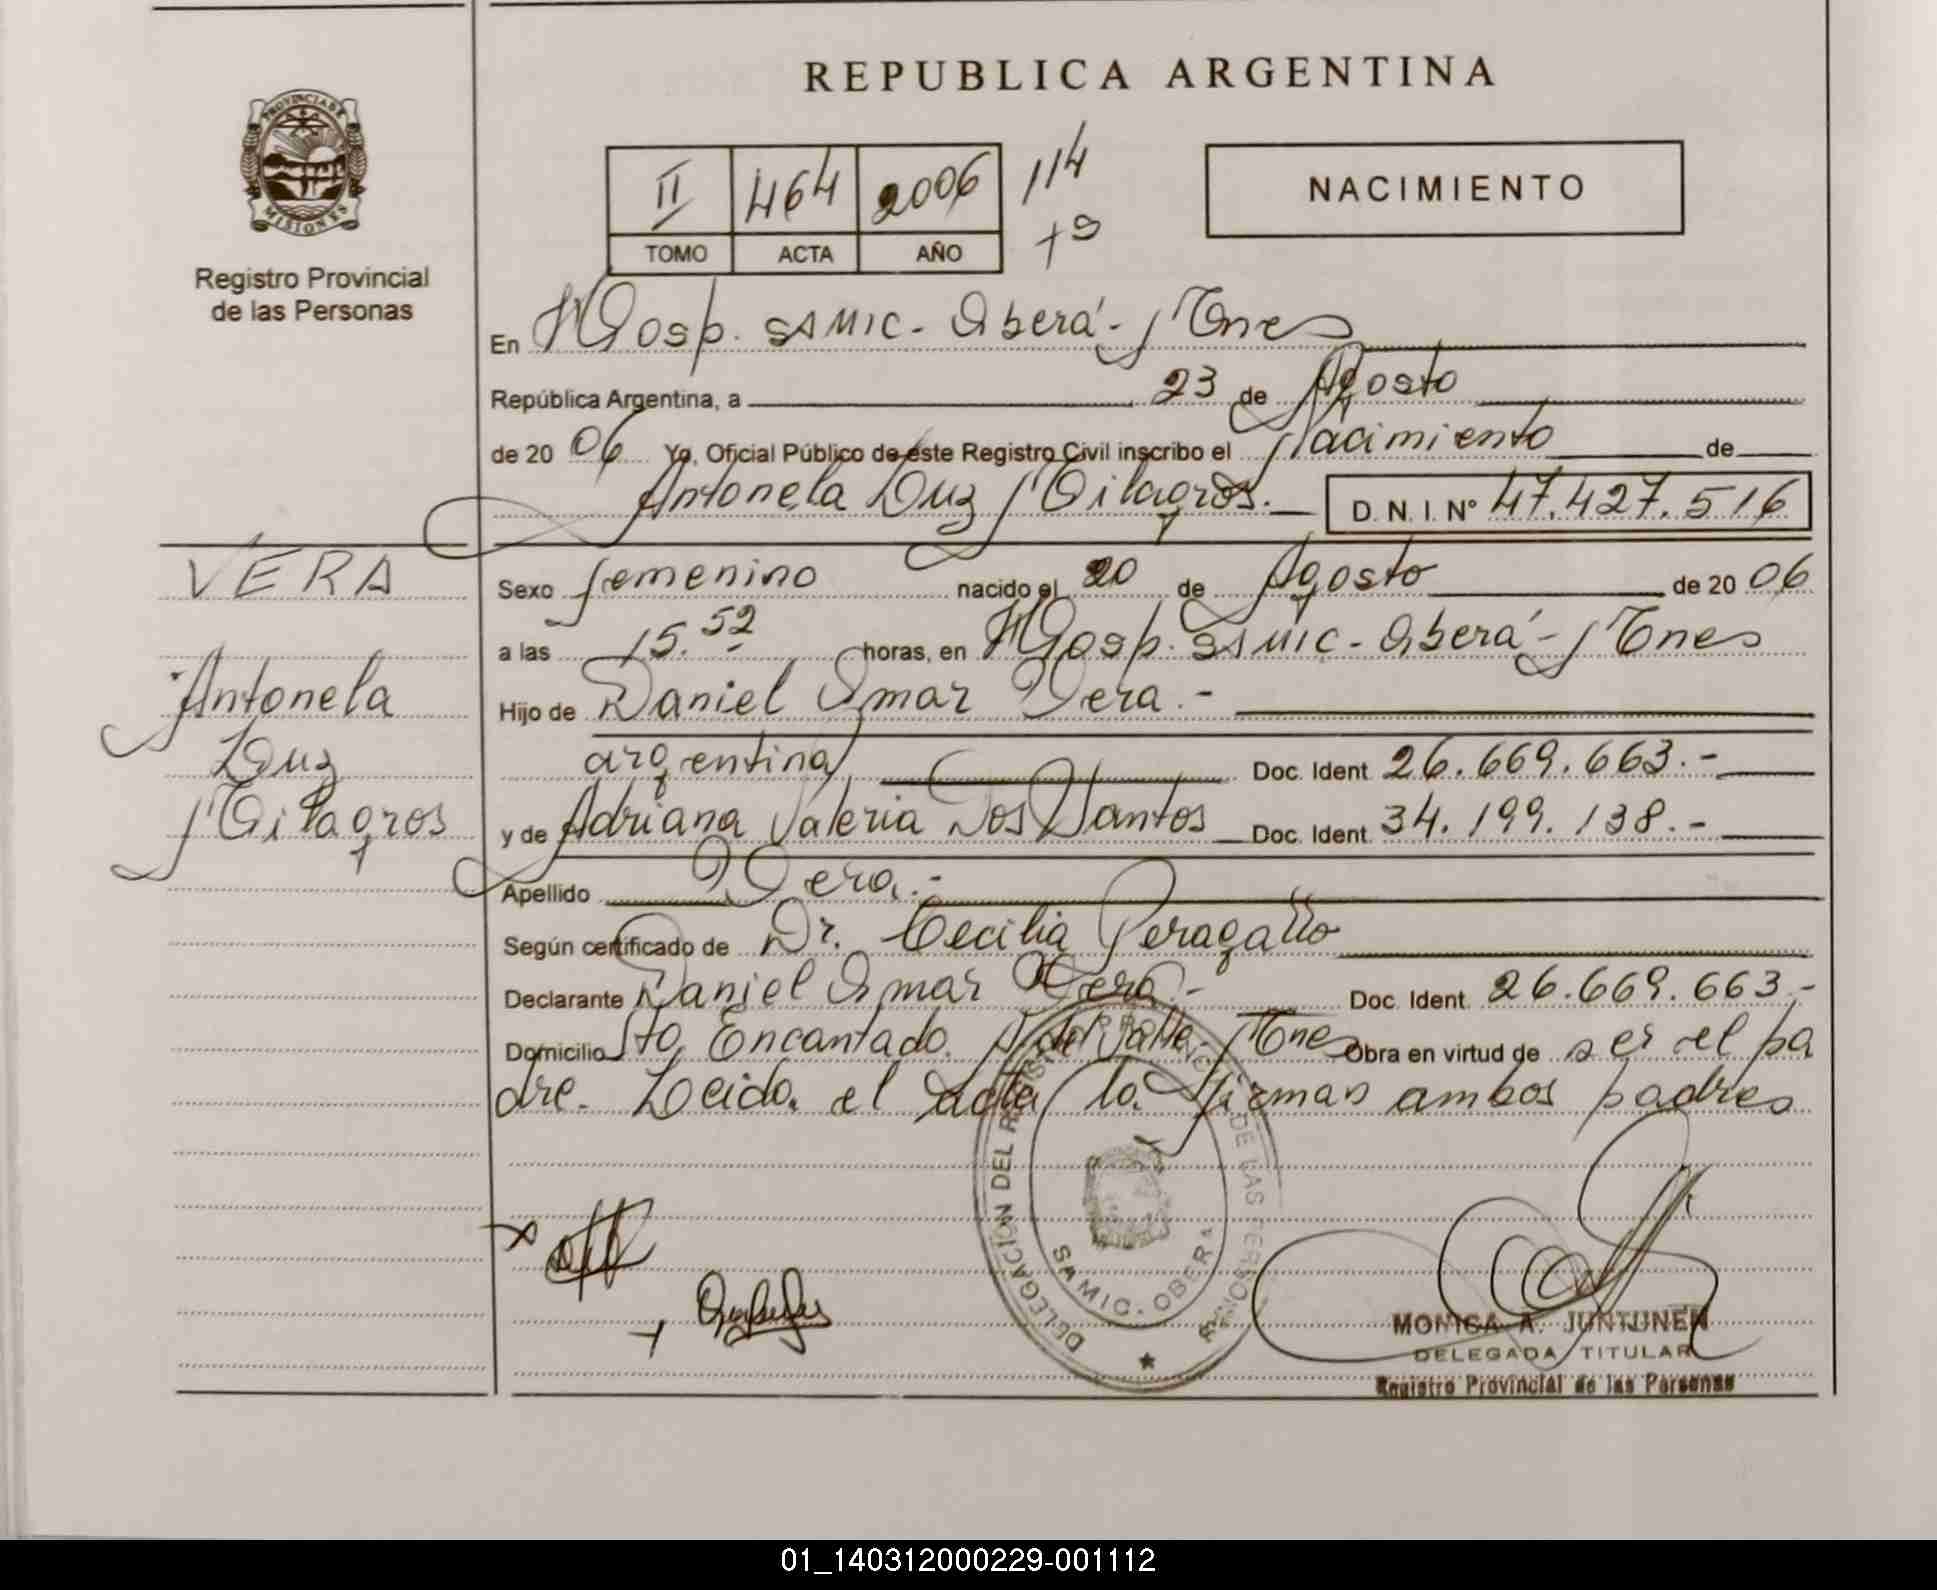 REPUBLICA ARGENTINA
PROVINCIA DE
MISIONES
Registro Provincial
de las Personas
II 464 2006 114
TOMO ACTA AÑO
NACIMIENTO
En Hosp. SAMIC - Oberá - Mnes
República Argentina, a 23 de Agosto
de 20 06 Yo, Oficial Público de este Registro Civil inscribo el Nacimiento de
Antonela Luz Milagros. D. N. I. N° 47.427.516
VERA
Antonela
Luz
Milagros
Sexo femenino nacido el 20 de Agosto de 20 06
a las 15.52 horas, en Hosp. SAMIC - Oberá - Mnes
Hijo de Daniel Omar Vera.-
argentina Doc. Ident. 26.669.663.-
y de Adriana Valeria Dos Santos Doc. Ident. 34.199.138.-
Apellido Vera.-
Según certificado de Dr. Cecilia Peragallo
Declarante Daniel Omar Vera.- Doc. Ident. 26.669.663.-
Domicilio Sto Encantado. A. del Valle. Mnes Obra en virtud de ser el pa
dre. Leida el acta la firman ambos padres
DELEGACION DEL REGISTRO PROVINCIAL DE LAS PERSONAS
SAMIC. OBERA
MONICA A. JUNTUNEN
DELEGADA TITULAR
Registro Provincial de las Personas
01_140312000229-001112